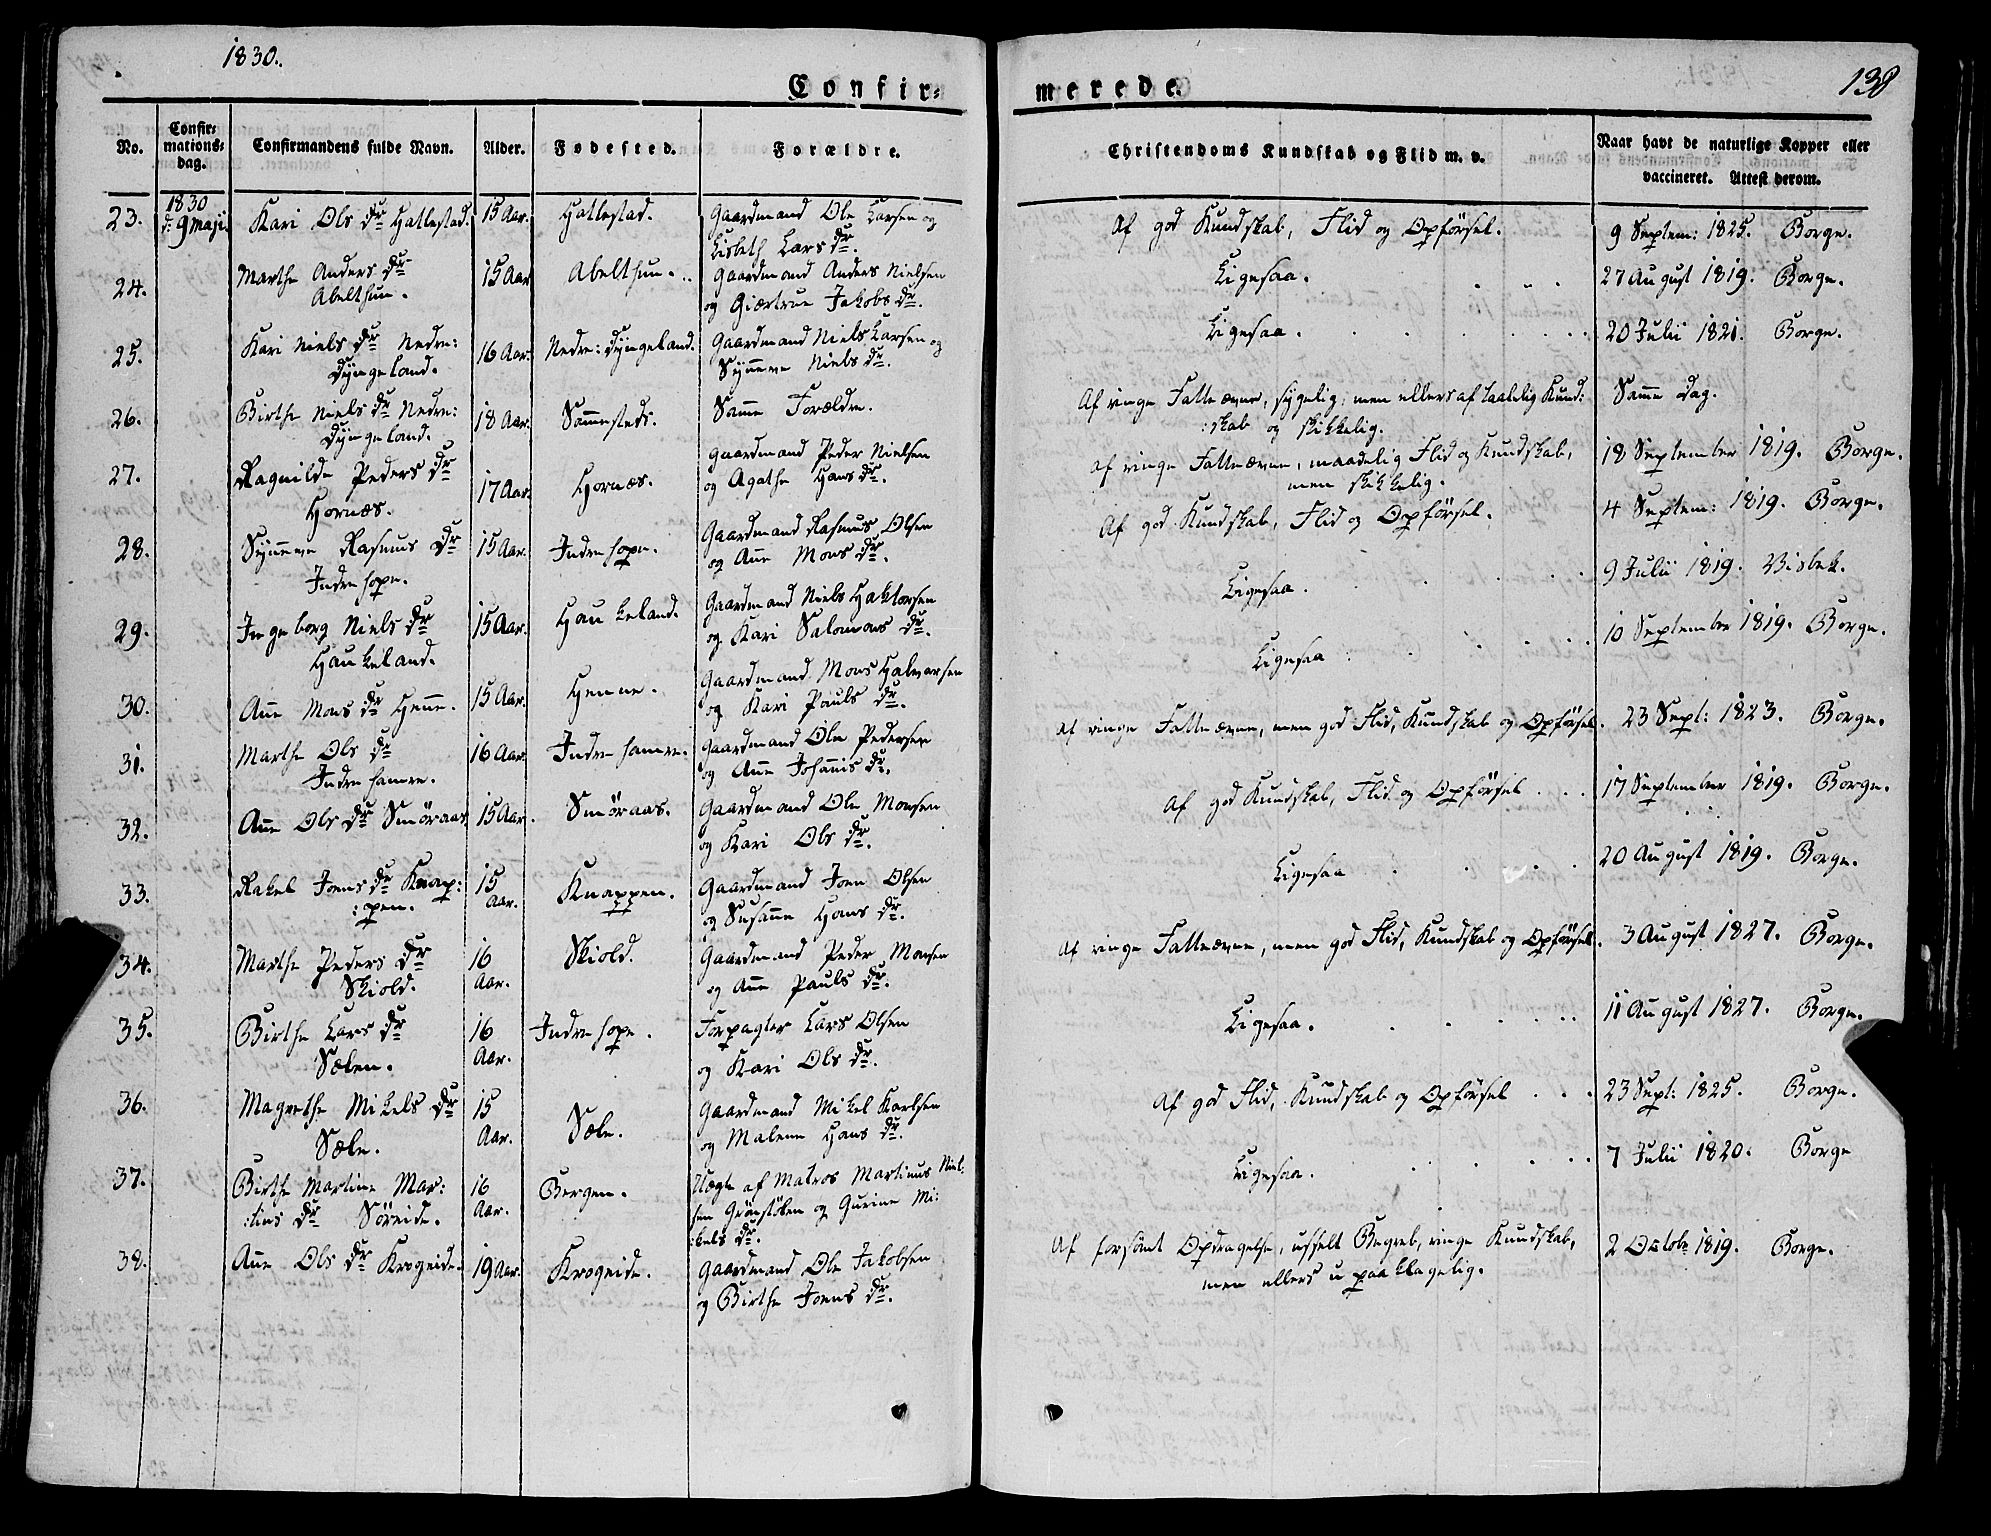 1830.
Confir=
merede.
138
No.
Confir=
mations=
dag.
Confirmandens fulde Navn.
Alder.
Fødested.
Forældre.
Christendoms Kundskab og Flid m. v.
Naar havt de naturlige Kopper eller
vaccineret. Attest derom.
23. 1830 d: 9 Maji. Kari Ols Dr Hatlestad. 15 Aar. Hatlestad. Gaardmand Ole Larsen og
Lisbeth Lars Dr.
Af god Kundskab, Flid og Opförsel. 9 Septem: 1825. Borge.
24. Marthe Anders Dr
Abelthun. 15 Aar Abelthun. Gaardmand Anders Nielsen
og Giertrue Jakobs Dr.
Ligesaa. 27 August 1819. Borge.
25. Kari Niels Dr Nedre:
Dyngeland. 16 Aar. Nedre: Dyngeland. Gaardmand Niels Larsen og
Synneve Niels Dr.
Ligesaa. 20 Julii 1821. Borge.
26. Birthe Niels Dr Nedre:
Dyngeland. 18 Aar. Sammesteds. Samme Forældre.
Af ringe Fatteævne, sygelig; men ellers af taalelig Kund:
:skab og skikkelig. Samme Dag.
27. Ragnilde Peders Dr
Hornæs. 17 Aar. Hornæs. Gaardmand Peder Nielsen
og Agathe Hans Dr.
Af ringe Fatteævne, maadelig Flid og Kundskab,
men skikkelig. 18 September 1819. Borge.
28. Synneve Rasmus Dr
Indre hope. 15 Aar. Indre hope. Gaardmand Rasmus Olsen
og Anne Mons Dr.
Af god Kundskab, Flid og Opförsel. 4 Septem: 1819. Borge.
29. Ingeborg Niels Dr
Haukeland. 15 Aar. Haukeland. Gaardmand Niels Haktorsen
og Kari Salomons Dr.
Ligesaa. 9 Julii 1819. Visbek.
30. Anne Mons Dr Henne. 15 Aar. Henne. Gaardmand Mons Halvorsen
og Kari Pauls Dr.
Ligesaa. 10 September 1819. Borge.
31. Marthe Ols Dr
Indre hamre. 16 Aar. Indre hamre. Gaardmand Ole Pedersen
og Anne Johannis Dr.
Af ringe Fatteævne, men god Flid, Kundskab og Opförsel. 23 Sept: 1823. Borge.
32. Anne Ols Dr Smöraas. 15 Aar. Smöraas. Gaardmand Ole Monsen
og Kari Ols Dr.
Af god Kundskab, Flid og Opförsel 17 September 1819. Borge.
33. Rakel Joens Dr Knap:
:pen. 15
Aar. Knappen. Gaardmand Joen Olsen
og Susanne Hans Dr.
Ligesaa 20 August 1819. Borge.
34. Marthe Peders Dr
Skiold. 16
Aar. Skiold. Gaardmand Peder Monsen
og Anne Pauls Dr.
Af ringe Fatteævne, men god Flid, Kundskab og Opförsel. 3 August 1827. Borge.
35. Birthe Lars Dr
Sælen. 16
Aar. Indre hope. Forpagter Lars Olsen
og Kari Ols Dr.
Ligesaa. 11 August 1827. Borge.
36. Magrethe Mikels Dr
Sæle. 15
Aar. Sæle. Gaardmand Mikel Karlsen
og Malene Hans Dr.
Af god Flid, Kundskab og Opförsel 23 Sept: 1825. Borge.
37. Birthe Martine Mar:
:tins Dr Söreide. 16
Aar. Bergen. Uægte af Matros Martinus Niel:
sen Grönstölen og Gurine Mi:
:kels Dr.
Ligesaa. 7 Julii 1820. Borge
38. Anne Ols Dr Krogeide. 19 Aar. Krogeide. Gaardmand Ole Jakobsen
og Birthe Joens Dr.
Af forsömt Opdragelse, usselt Begreb, ringe Kundskab,
men ellers upaaklagelig. 2 Octobr 1819. Borge.